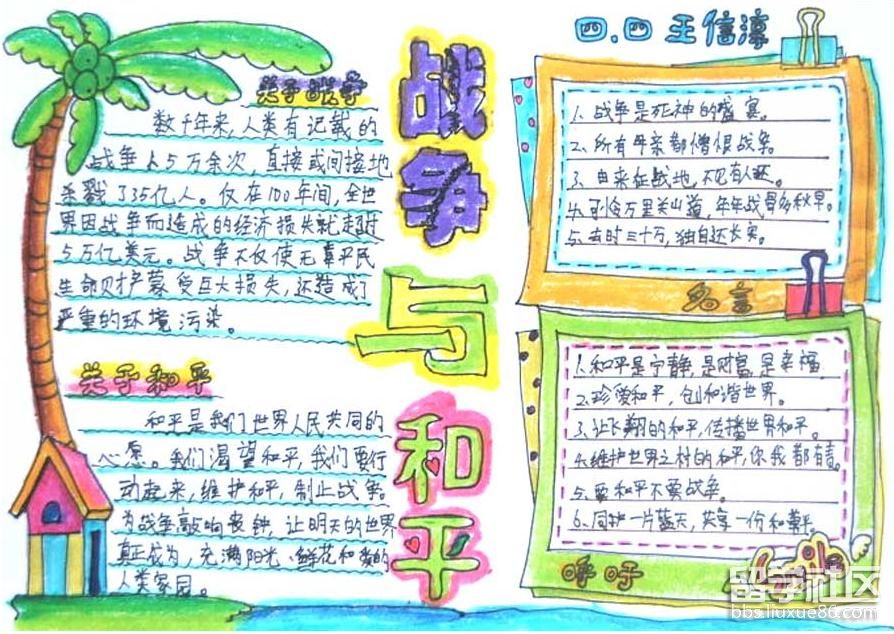 四.四 王信淳
战争与和平
关于战争
数千年来,人类有记载的
战争上5万余次,直接或间接地
杀戮了35亿人。仅在100年间,全世
界因战争而造成的经济损失就超过
5万亿美元。战争不仅使无辜平民
生命财产蒙受巨大损失,还造成了
严重的环境污染。
关于和平
和平是我们世界人民共同的
心愿。我们渴望和平,我们要行
动起来,维护和平,制止战争。
为战争敲响丧钟,让明天的世界
真正成为,充满阳光、鲜花和爱的
人类家园。
1、战争是死神的盛宴。
2、所有母亲都憎恨战争。
3、由来征战地,不见有人还。
4、可怜万里关山道,年年战骨多秋草。
5、去时三十万,独自还长安。
名言
1、和平是宁静,是财富,是幸福
2、珍爱和平,创和谐世界。
3、让飞翔的和平,传播世界和平。
4、维护世界之村的和平,你我都有责。
5、要和平不要战争。
6、同护一片蓝天,共享一份和平。
呼吁
留学社区
bbs.liuxue86.com